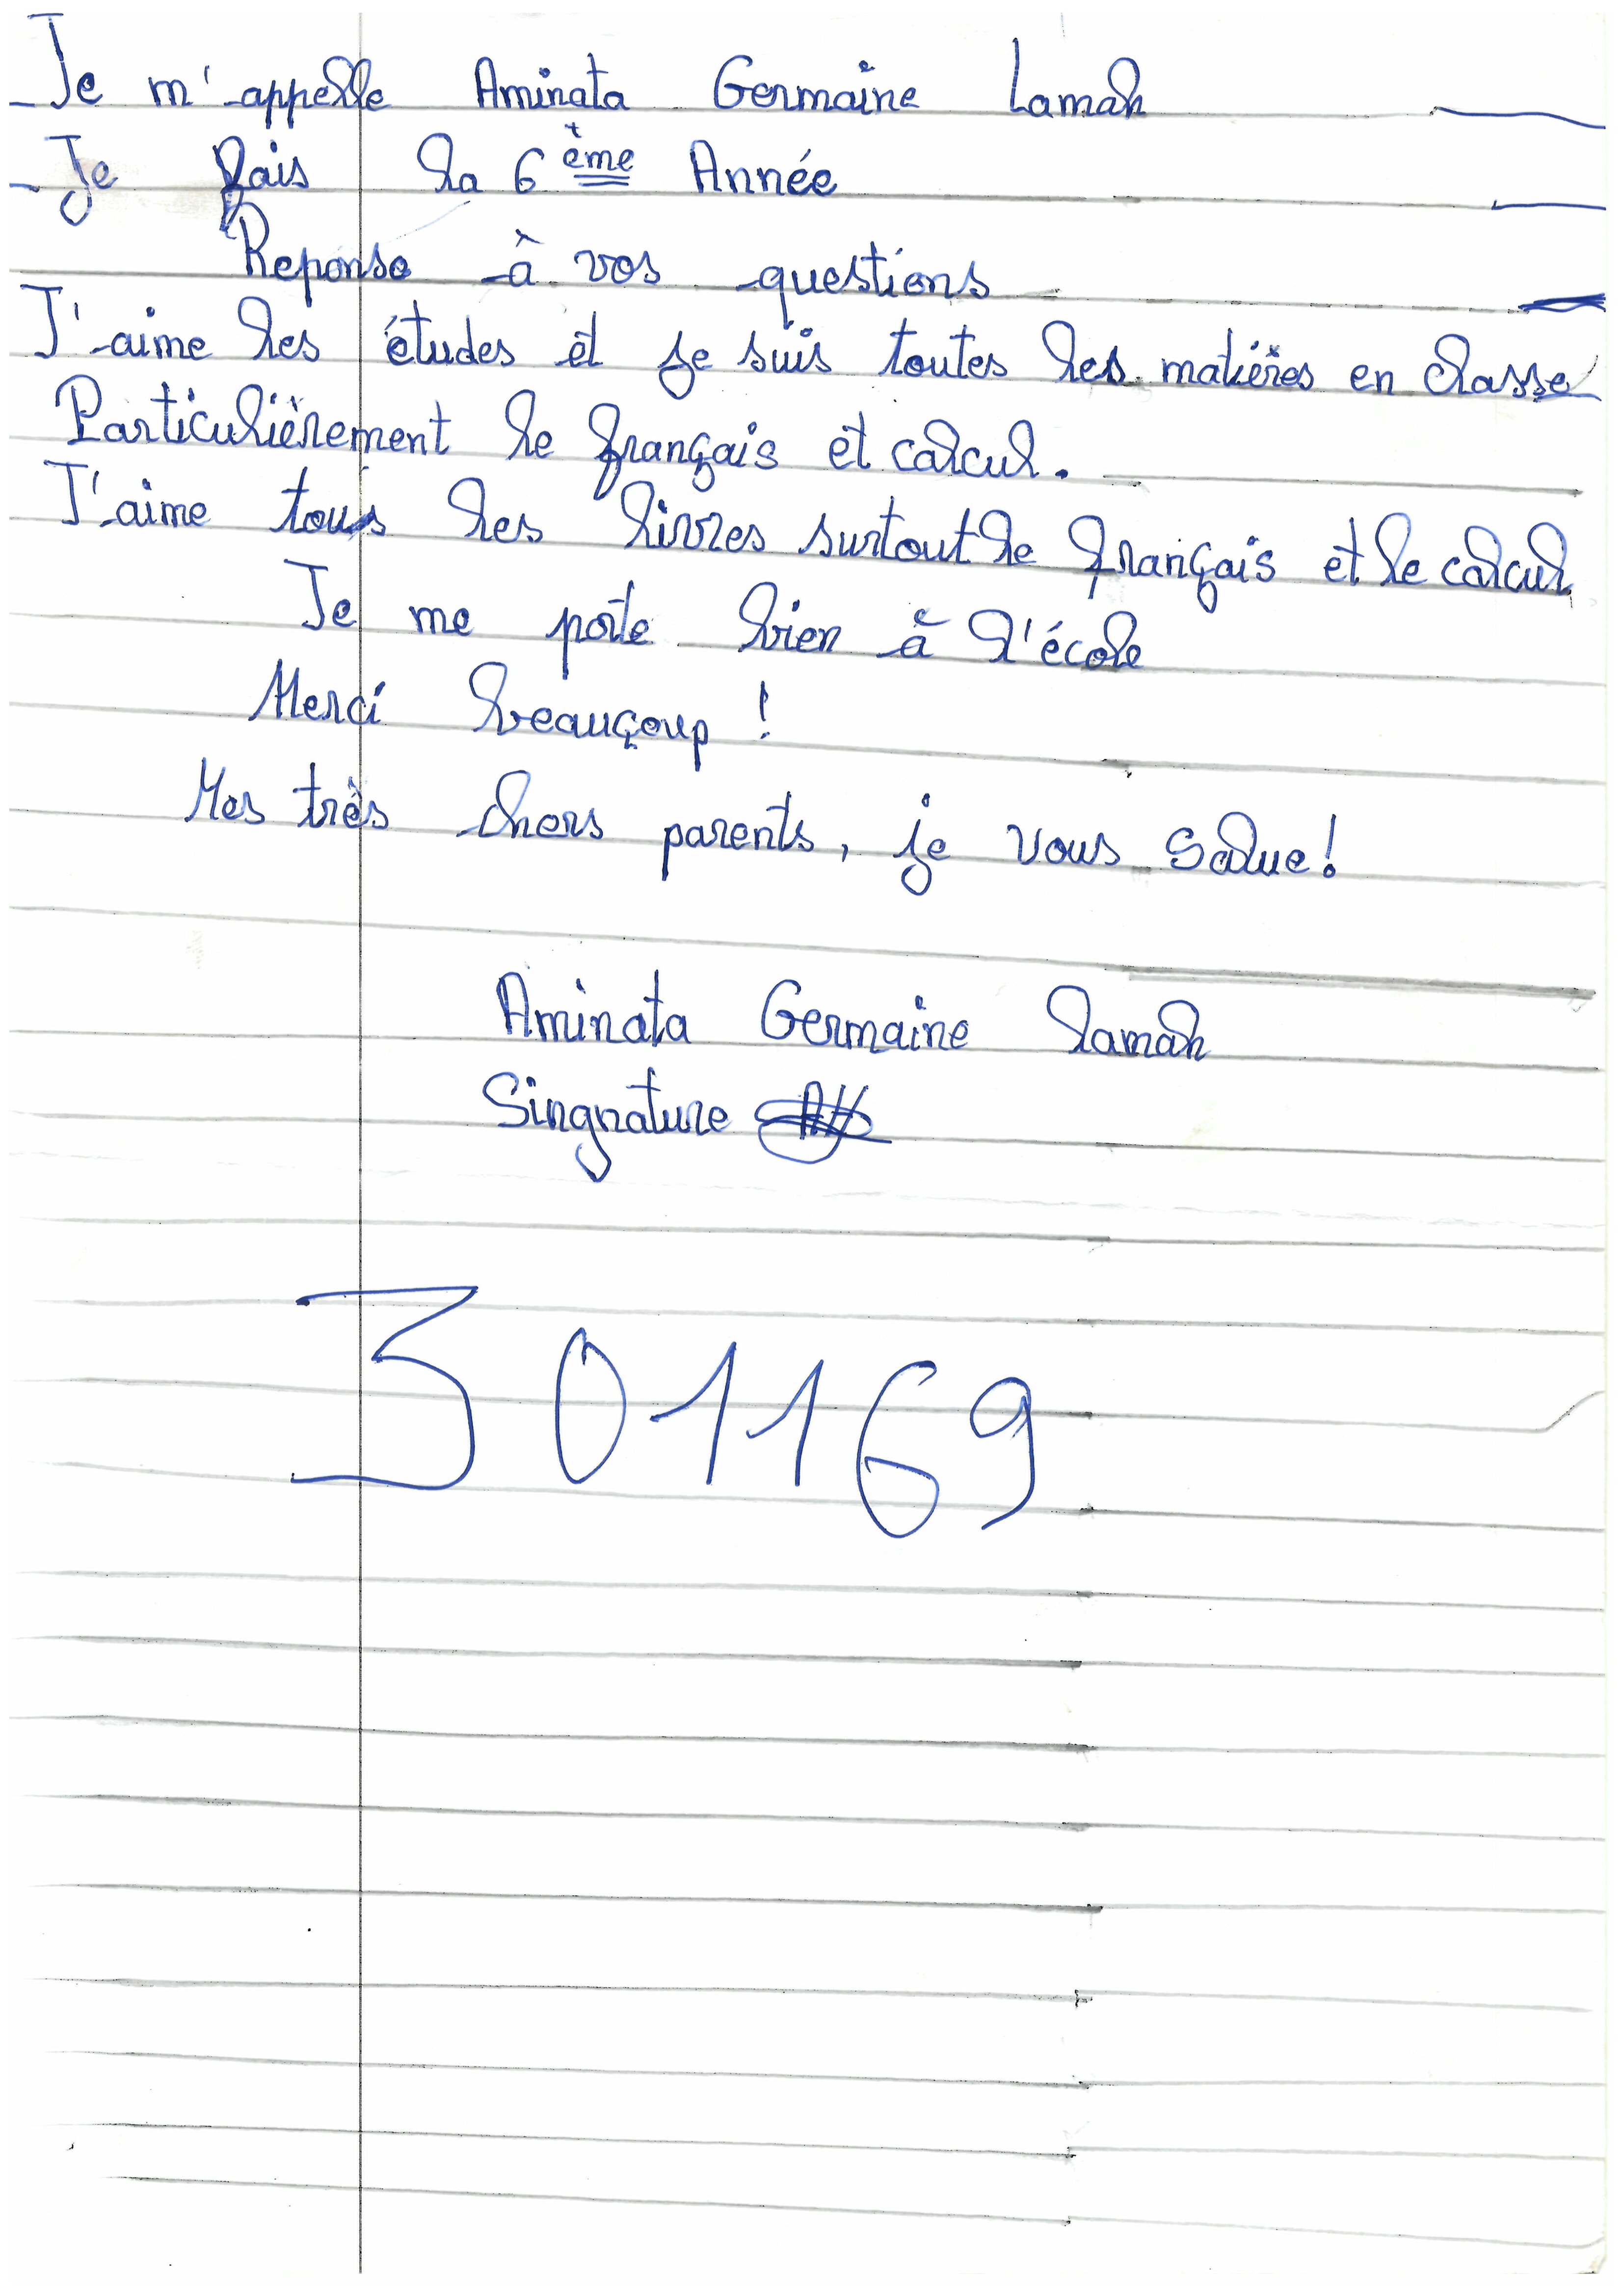 Je m'appelle Aminata Germaine Lamah
Je fais la 6ème Année
Reponse à vos questions
J'aime les études et je suis toutes les matières en classe
Particulièrement le français et calcul.
J'aime tous les livres surtout le français et le calcul
Je me pote bien à l'école
Merci beauçoup !
Mes très chers parents, je vous salue !
Aminata Germaine lamah
Singnature
301169